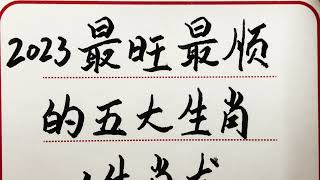 2023最旺最顺
的五大生肖